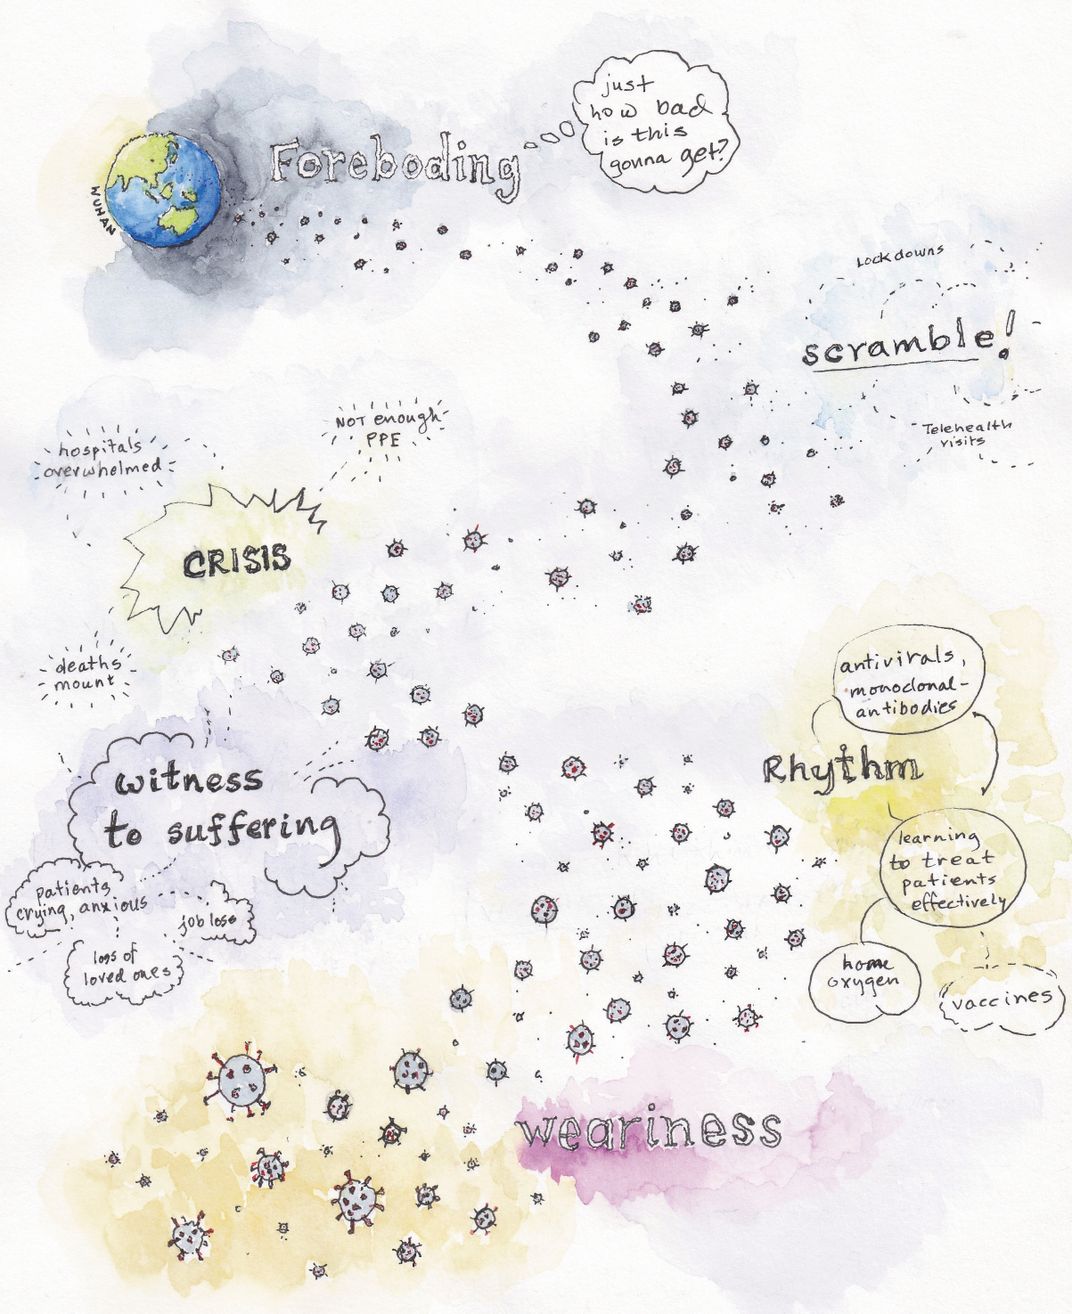 just
how bad
is this
gonna get?
Foreboding
WUHAN
Lockdowns
scramble!
Telehealth
visits
NOT enough
PPE
hospitals
overwhelmed
CRISIS
deaths
mount
antivirals,
monoclonal-
antibodies
Rhythm
learning
to treat
patients
effectively
home
oxygen
vaccines
witness
to suffering
patients
crying, anxious
job loss
loss of
loved ones
weariness